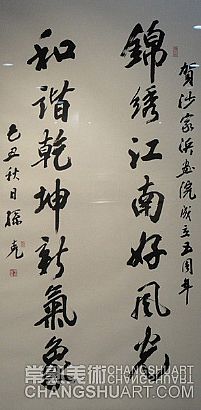 賀沙家浜画院成立五周年
錦绣江南好風光
和谐乾坤新氣象
己丑秋日孫克
常熟美術
CHANGSHUART.COM
CHANGSHUART.COM